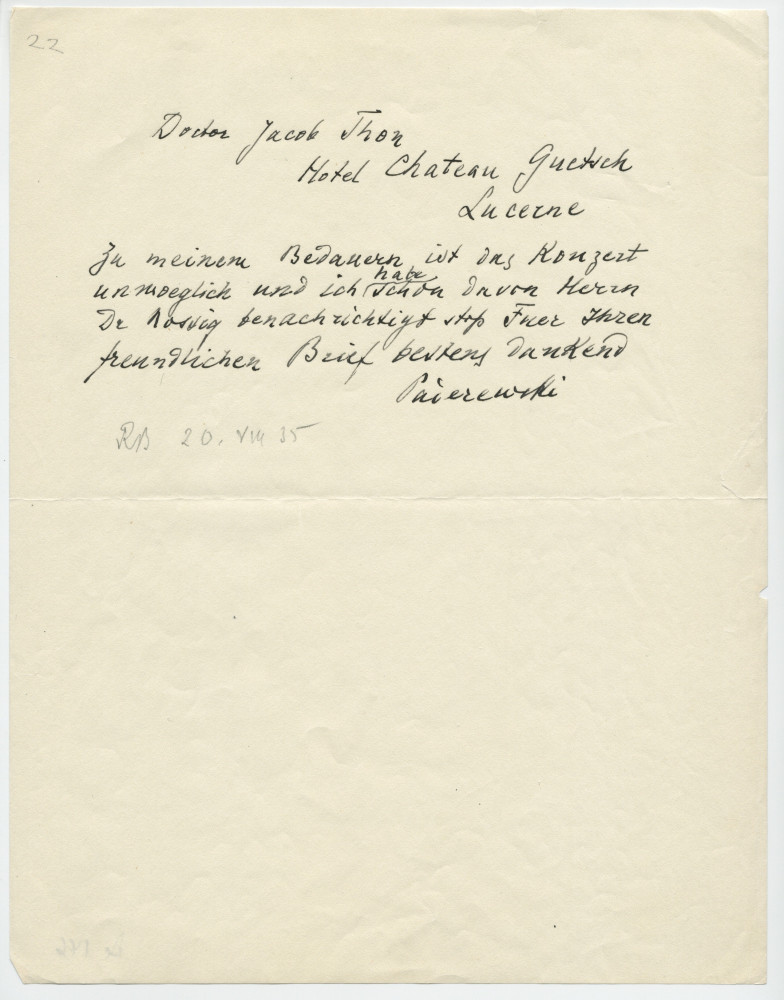 22
Doctor Jacob Thon
Hotel Chateau Guetsch
Lucerne
Zu meinem Bedauern ist das Konzert
habe
unmoeglich und ich schon davon Herrn
Dr benachrichtigt stop Fuer Ihren
freundlichen Brief bestens dankend
Paderewski
RB 20. VIII 35